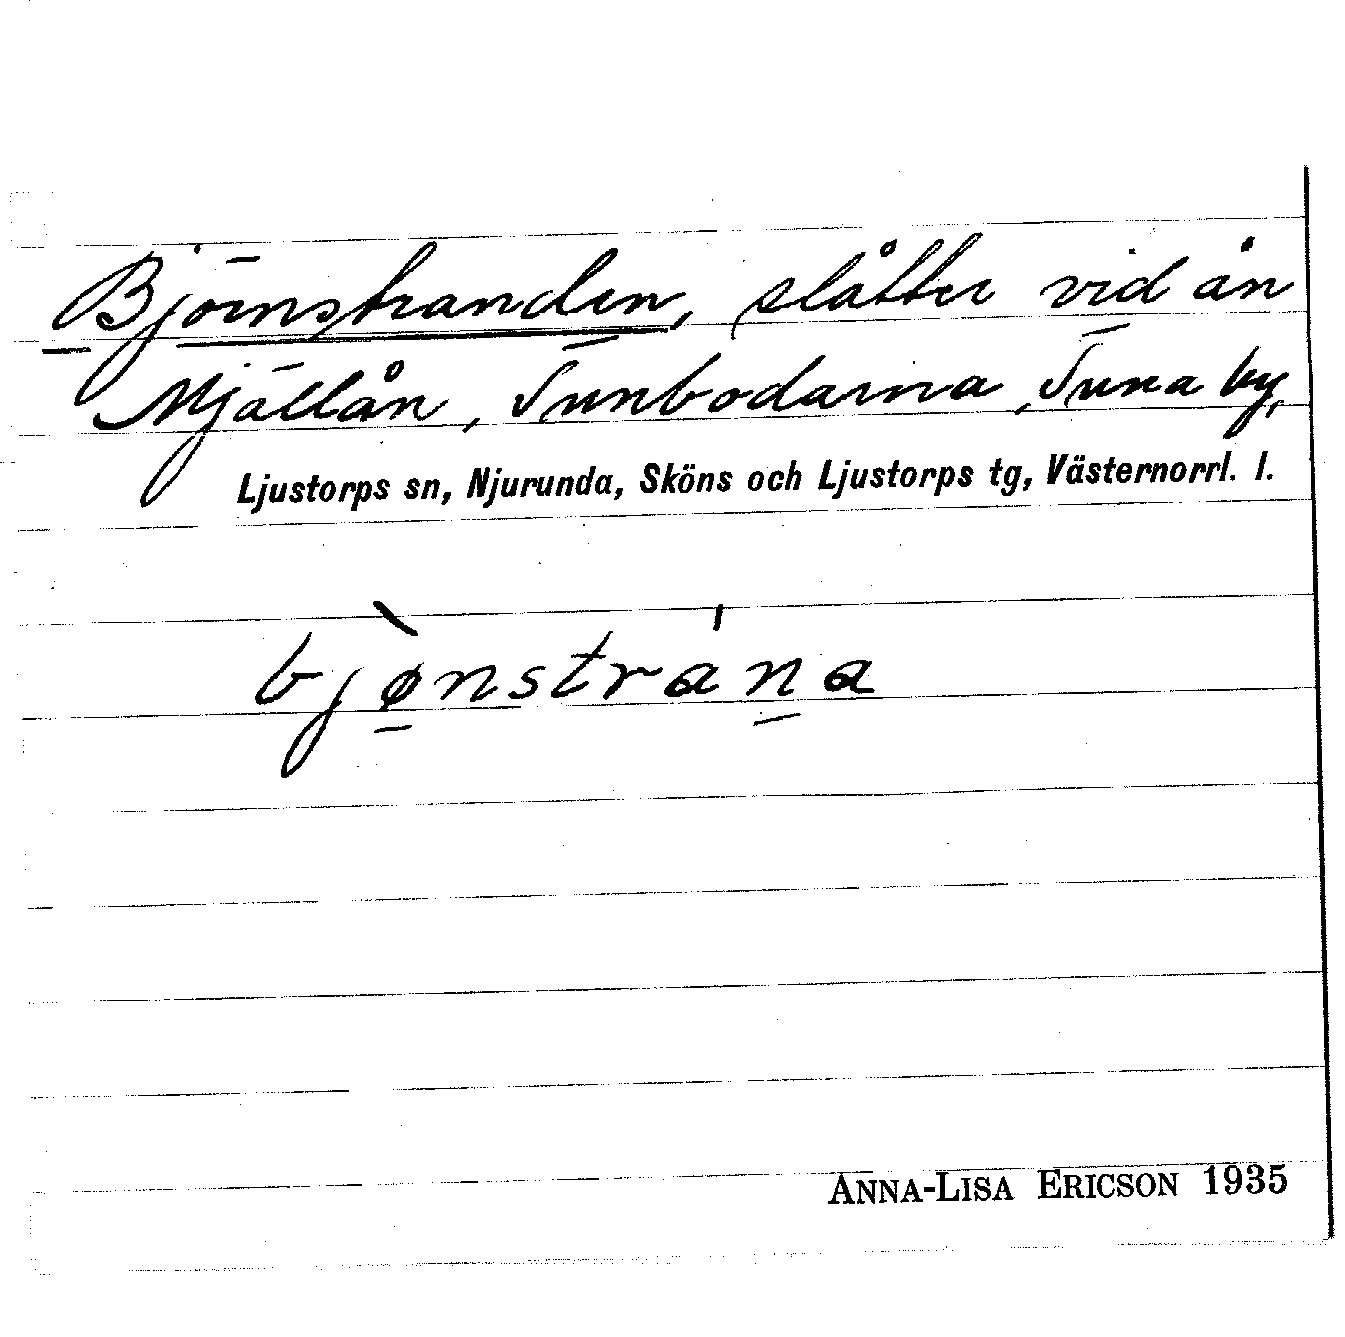 Björnstranden, slåtter vid ån
Mjällån, Tunbodarna, Tuna by,
Ljustorps sn, Njurunda, Sköns och Ljustorps tg, Västernorrl. l.
bjø̱̀nstráṉa
ANNA-LISA ERICSON 1935